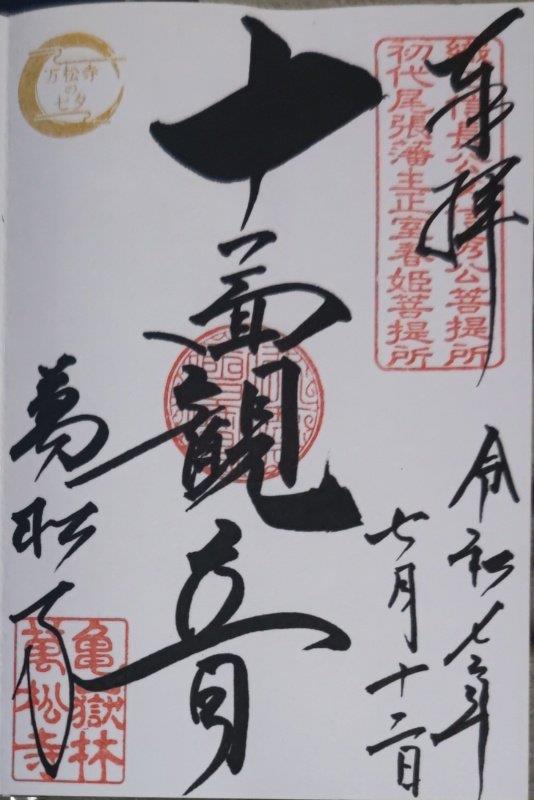 奉拝
織田信長公
秀公菩提所
初代尾張藩主正室春姫菩提所
令和七年
七月十二日
十一面観音
万松寺
の
七夕
萬松寺
亀嶽林
萬松寺